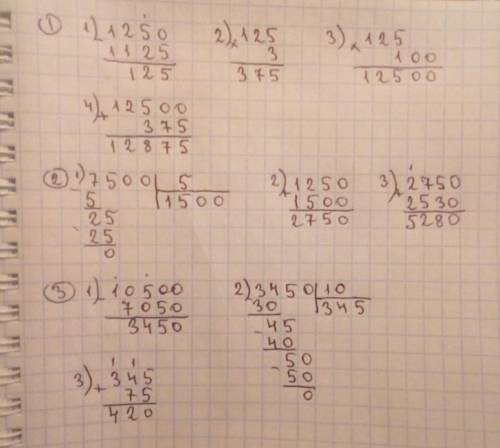 ① 1) - 1250 2) × 125 3) × 125
1125 3 100
125 375 12500
4) + 12500
375
12875
② 1) 7500 | 5 2) + 1250 3) + 2750
5 1500 1500 2530
25 2750 5280
- 25
0
③ 1) - 10500 2) 3450 | 10
7050 30 345
3450 - 45
40
3) + 345 - 50
75 50
420 0